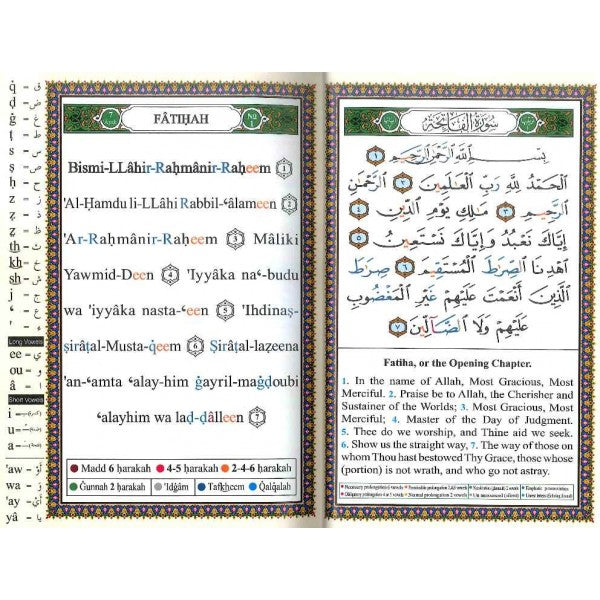 q̇ - ق
ḍ - ض
ġ - غ
ṭ - ط
ṣ - ص
ḥ - ح
ẓ - ظ
z̤ - ذ
th - ث
kh - خ
sh - ش
j - ج
Long Vowels
ee - ي
ou - و
â - ا
Short Vowels
i
u
a
'aw - أَوْ
wa - وَ
'ay - أَيْ
yâ - يَا
FÂTIḤAH
Bismi-LLâhir-Raḥmânir-Raḥeem 1
'Al-Ḥamdu li-LLâhi Rabbil-ʿâlameen 2
'Ar-Raḥmânir-Raḥeem 3 Mâliki
Yawmid-Deen 4 'Iyyâka naʿ-budu
wa 'iyyâka nasta-ʿeen 5 'Ihdinaṣ-
ṣirâṭal-Mustaq̇eem 6 Ṣirâṭal-laẓeena
'an-ʿamta ʿalay-him ġayril-maġḍoubi
ʿalayhim wa laḍ-ḍâlleen 7
Madd 6 ḥarakah 4-5 ḥarakah 2-4-6 ḥarakah
Ġunnah 2 ḥarakah 'Idġâm Tafkheem Qalqalah
سُورَةُ الْفَاتِحَةِ
بِسْمِ اللَّهِ الرَّحْمَٰنِ الرَّحِيمِ ١
الْحَمْدُ لِلَّهِ رَبِّ الْعَالَمِينَ ٢ الرَّحْمَٰنِ
الرَّحِيمِ ٣ مَالِكِ يَوْمِ الدِّينِ ٤
إِيَّاكَ نَعْبُدُ وَإِيَّاكَ نَسْتَعِينُ ٥
اهْدِنَا الصِّرَاطَ الْمُسْتَقِيمَ ٦ صِرَاطَ
الَّذِينَ أَنْعَمْتَ عَلَيْهِمْ غَيْرِ الْمَغْضُوبِ
عَلَيْهِمْ وَلَا الضَّالِّينَ ٧
Fatiha, or the Opening Chapter.
1. In the name of Allah, Most Gracious, Most
Merciful. 2. Praise be to Allah, the Cherisher and
Sustainer of the Worlds; 3. Most Gracious, Most
Merciful; 4. Master of the Day of Judgment.
5. Thee do we worship, and Thine aid we seek.
6. Show us the straight way, 7. The way of those on
whom Thou hast bestowed Thy Grace, those whose
(portion) is not wrath, and who go not astray.